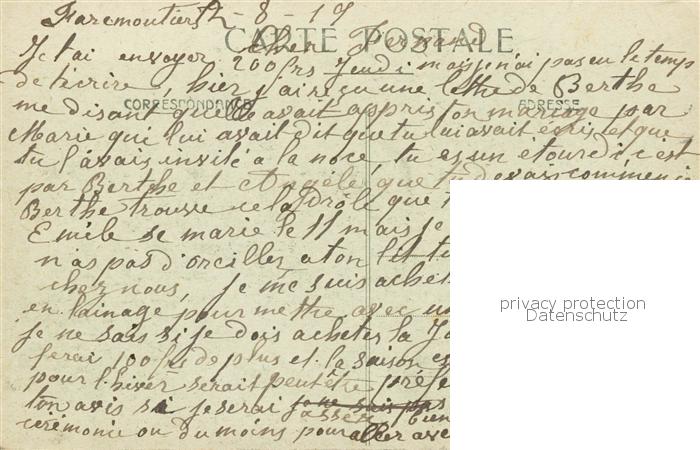 Faremoutiers 12-8-19
CARTE POSTALE
Cher Fernand
Je t'ai envoyer 200 frs Jeudi mais je n'ai pas eu le temp
de t'écrire, hier j'ai reçu une lettre de Berthe
CORRESPONDANCE ADRESSE
me disant quelle avait appris ton mariage par
Marie qui lui avait dit que tu lui avait écris et que
tu l'avais invité a la noce, tu es un etourdi c'est
par Berthe et Angèle que tu devais commenci
Berthe trouve cela drôle que
Emile se marie le 11 mais je
n'as pas d'oreiller a ton lit tu
chez nous, je me suis achet
en lainage pour mettre avec un
je ne sais si je dois acheter la Ja
ferai 100 frs de plus et la saison es
pour l'hiver serait peut être préfe
ton avis si je serai je ne sais pas
assez bien
cérémonie ou du moins pour aller ave
privacy protection
Datenschutz